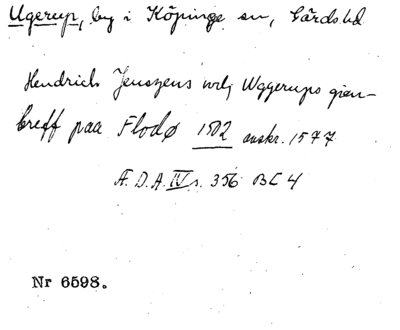 Ugerup, by i Köpinge sn, Gärds hd
Hendrich Jenszens udj Wggerups gien-
breff paa Flodø 1502 avskr. 1577
Æ. D. A. IV s. 356 BC 4
Nr 6598.